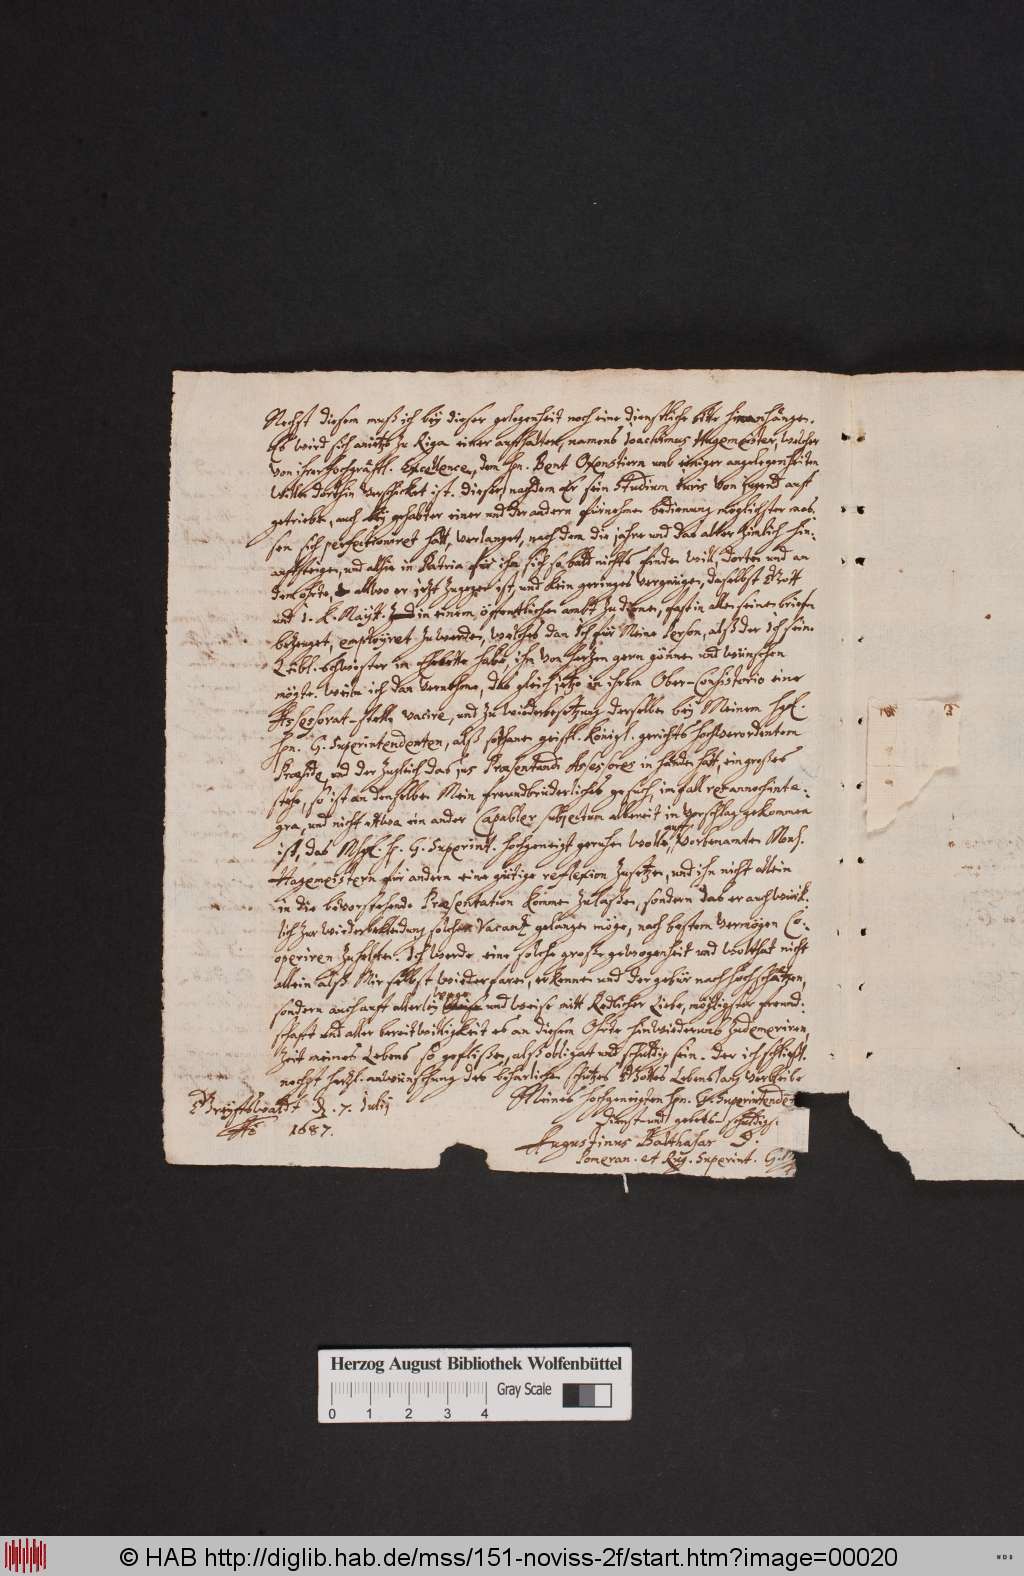 Nechst diesem muß ich bey dieser gelegenheit noch eine dienstliche bitte hinanhängen.
Es wird sich anitzo zu Riga einer auffhalten, namens Joachimus Hagemeister, welcher
von ihrer hochgräffl. Excellence, dem hn. Bent Oxenstiern umb einiger angelegenheiten
willen dorthin verschicket ist. Dieser, nachdem Er sein Studium Juris von Jugend auff
getrieben, auch bey gehabter einer und der andern fürnehmen bedienung möglichster mas-
sen sich perfectioniret hatt, verlanget, nach dem die jahre und das alter zimlich hin-
auffsteigen, und alhie in Patria für ihn sich so bald nichts finden will, dorten und an
dem ohrte, allwo er jetzt zugegen ist, und kein geringes vergnügen, daselbst Gott
und I. K. Mayst. in einem öffentlichen ambt zu dienen, fast in allen seinen briefen
bezeuget, employret zu werden, welches dan Ich für Meine Person, alß der Ich seine
Leibl. Schwester im Ehebette habe, ihm von hertzen gern gönnen und wünschen
mögte. Wenn ich dan vernehme, das gleich jetzo in ihrem Ober-Consistorio eine
Assessorat-stelle vacire, und zu wiederbesetzung derselben bey Meinem hgl.
hn. G. Superintendenten, alß sothanen geistl. Königl. gerichts hochverordentem
Præside, und der zugleich das jus Præsentandi Assessores in händen hatt, ein großes
stehe, so ist an denselben Mein freundbrüderliches gesuch, im fall res annoch inte-
gra, und nicht etwa ein ander Capabler subjectum allereit in vorschlag gekommen
ist, das Mhgl. H. G. Superint. hochgeneigt geruhen wolle, auff vorbenamten Mons.
Hagemeistern für andern eine gütige reflexion zusetzen, und ihn nicht allein
in die bevorstehende Præsentation kommen zulaßen, sondern das er auch würck-
lich zur wiederbekleidung solcher Vacantz gelangen möge, nach bestem Vermögen Co-
operiren zuhelffen. Ich werde eine solche große gewogenheit und wolthat nicht
allein alß Mir selbst wiederfaren, erkennen und der gebür nach hochschätzen,
sondern auch auff allerley wege und weise mitt Redlicher Liebe, möglichster freund-
schafft und aller bereitwilligkeit es an diesem Ohrte hinwiederumb zudemeriren
Zeit meines Lebens so geflißen, alß obligat und schuldig sein. Der ich schließl.
nechst hertzl. anwünschung des beharlichen schutzes Gottes Lebenslang verbleibe
Greyffswaldt d. 7. Julij
Ao 1687.
Meines hochgeneigten hn. G. Superintenden
dienst- und gebets- schuldigs.
Augustinus Balthasar D.
Pomeran. et Rug. Superint. G.
Herzog August Bibliothek Wolfenbüttel
Gray Scale
0 1 2 3 4
© HAB http://diglib.hab.de/mss/151-noviss-2f/start.htm?image=00020